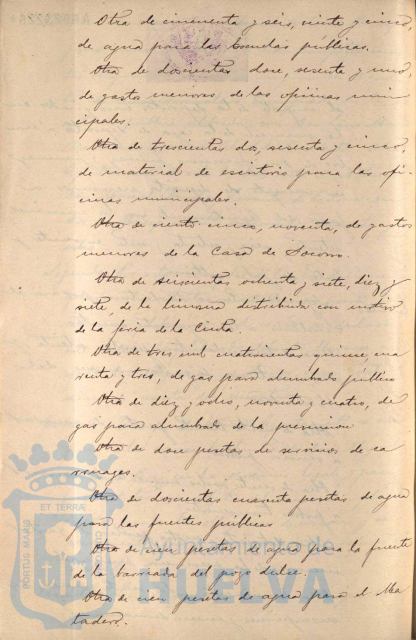 Otra de cincuenta y seis, veinte y cinco,
de agua para las Escuelas públicas.
Otra de doscientas doce, sesenta y uno
de gastos menores de las oficinas muni
cipales.
Otra de trescientas dos, sesenta y cinco,
de material de escritorio para las ofi-
cinas municipales.
Otra de ciento cinco, noventa, de gastos
menores de la Casa de Socorro.
Otra de seiscientas ochenta y siete, diez y
siete, de la limosna distribuida con motivo
de la feria de la Cinta.
Otra de tres mil cuatrocientas quince, cua
renta y tres, de gas para alumbrado público
Otra de diez y ocho, noventa y cuatro, de
gas para alumbrado de la prevención
Otra de doce pesetas de servicios de ca
rruages.
Otra de doscientas cuarenta pesetas de agua
para las fuentes públicas
Otra de cien pesetas de agua para la fuente
de la barriada del pozo dulce.
Otra de cien pesetas de agua para el Ma
tadero.
PORTUS MARIS ET TERRAE
Ayuntamiento de
HUELVA